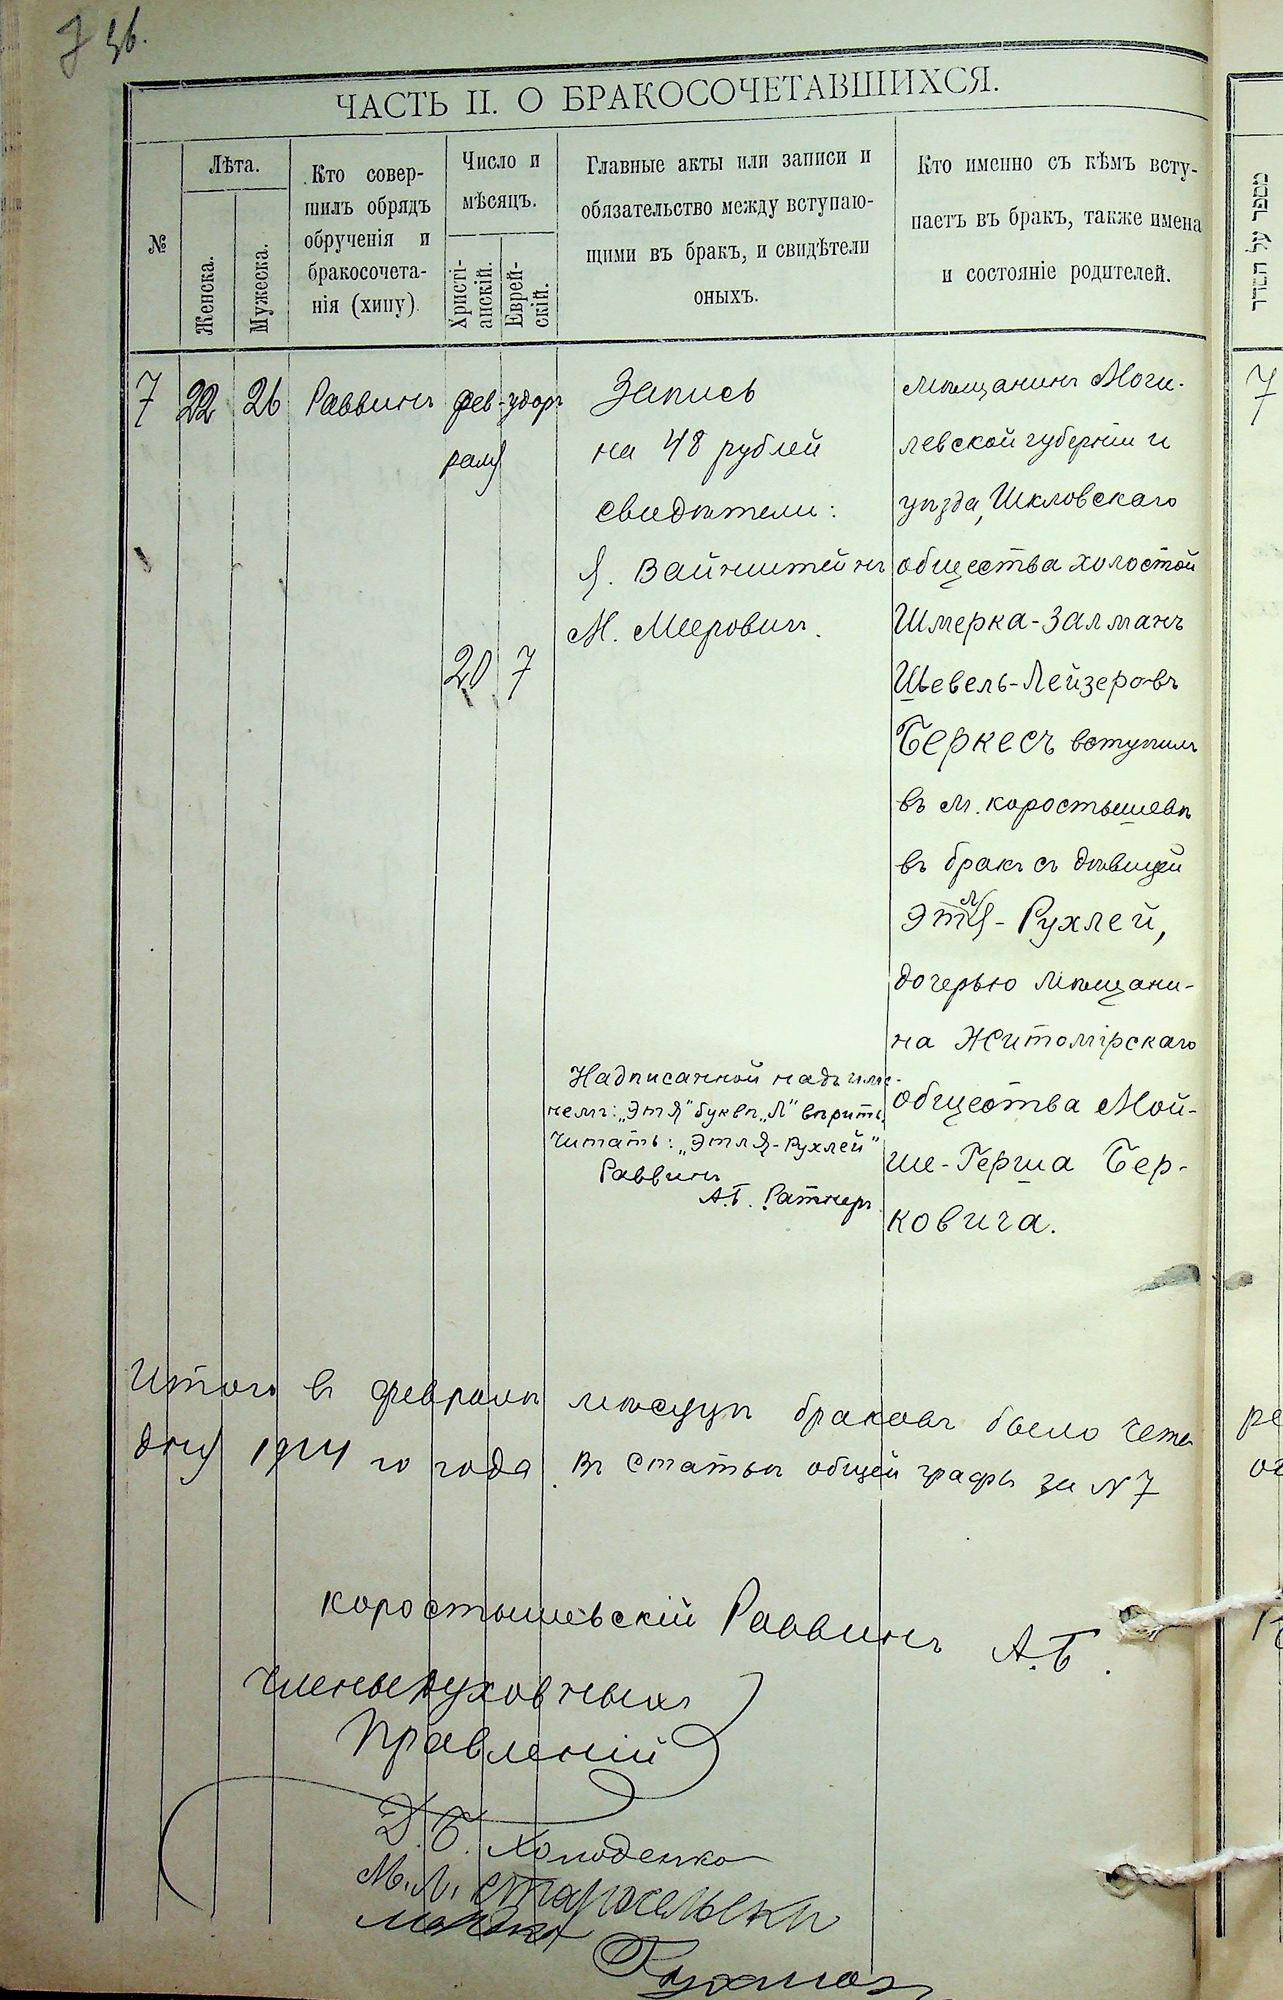 ЧАСТЬ II. О БРАКОСОЧЕТАВШИХСЯ.
№
Лѣта.
Женска.
Мужеска.
Кто совер-
шилъ обрядъ
обрученія и
бракосочета-
нія (хипу)
Число и
мѣсяцъ.
Христі-
анскій.
Еврей-
скій.
Главные акты или записи и
обязательство между вступаю-
щими въ бракъ, и свидѣтели
оныхъ.
Кто именно съ кѣмъ всту-
паетъ въ бракъ, также имена
и состояніе родителей.
7
22
26
Раввинъ
фев-
раля
20
удоръ
7
Запись
на 48 рублей
свидѣтели:
Я. Вайнштейнъ
М. Мееровичъ.
Надписанной надъ име-
немъ: „Этя" буквѣ „Л" вѣрить
читать: „Этля-Рухлей"
Раввинъ
А.Б. Ратнеръ
мѣщанинъ Моги-
левской губерніи и
уѣзда, Шкловскаго
общества холостой
Шмерка-Залманъ
Шевель-Лейзеровъ
Беркесъ вступилъ
въ м. Коростышевѣ
въ бракъ съ дѣвицей
л
Этя-Рухлей,
дочерью мѣщани-
на Житомірскаго
общества Мой-
ше-Герша Бер-
ковича.
Итого въ февралѣ мѣсяцѣ браковъ было
дня 19 4 го года въ статьѣ общей графы за № 7
Коростышевскій Раввинъ А.Б.
Члены духовныхъ
Правленій
Д.Б. Холоденко
М.Л. Старосельскій
מספר על הסדר
7